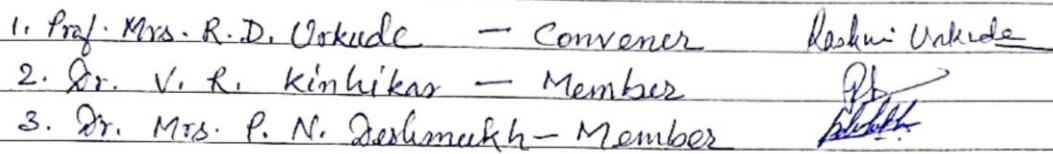 1. Prof. Mrs. R.D. Urkude — Convener Rashmi Urkude
2. Dr. V. R. Kinhikar — Member
3. Dr. Mrs. P. N. Deshmukh — Member